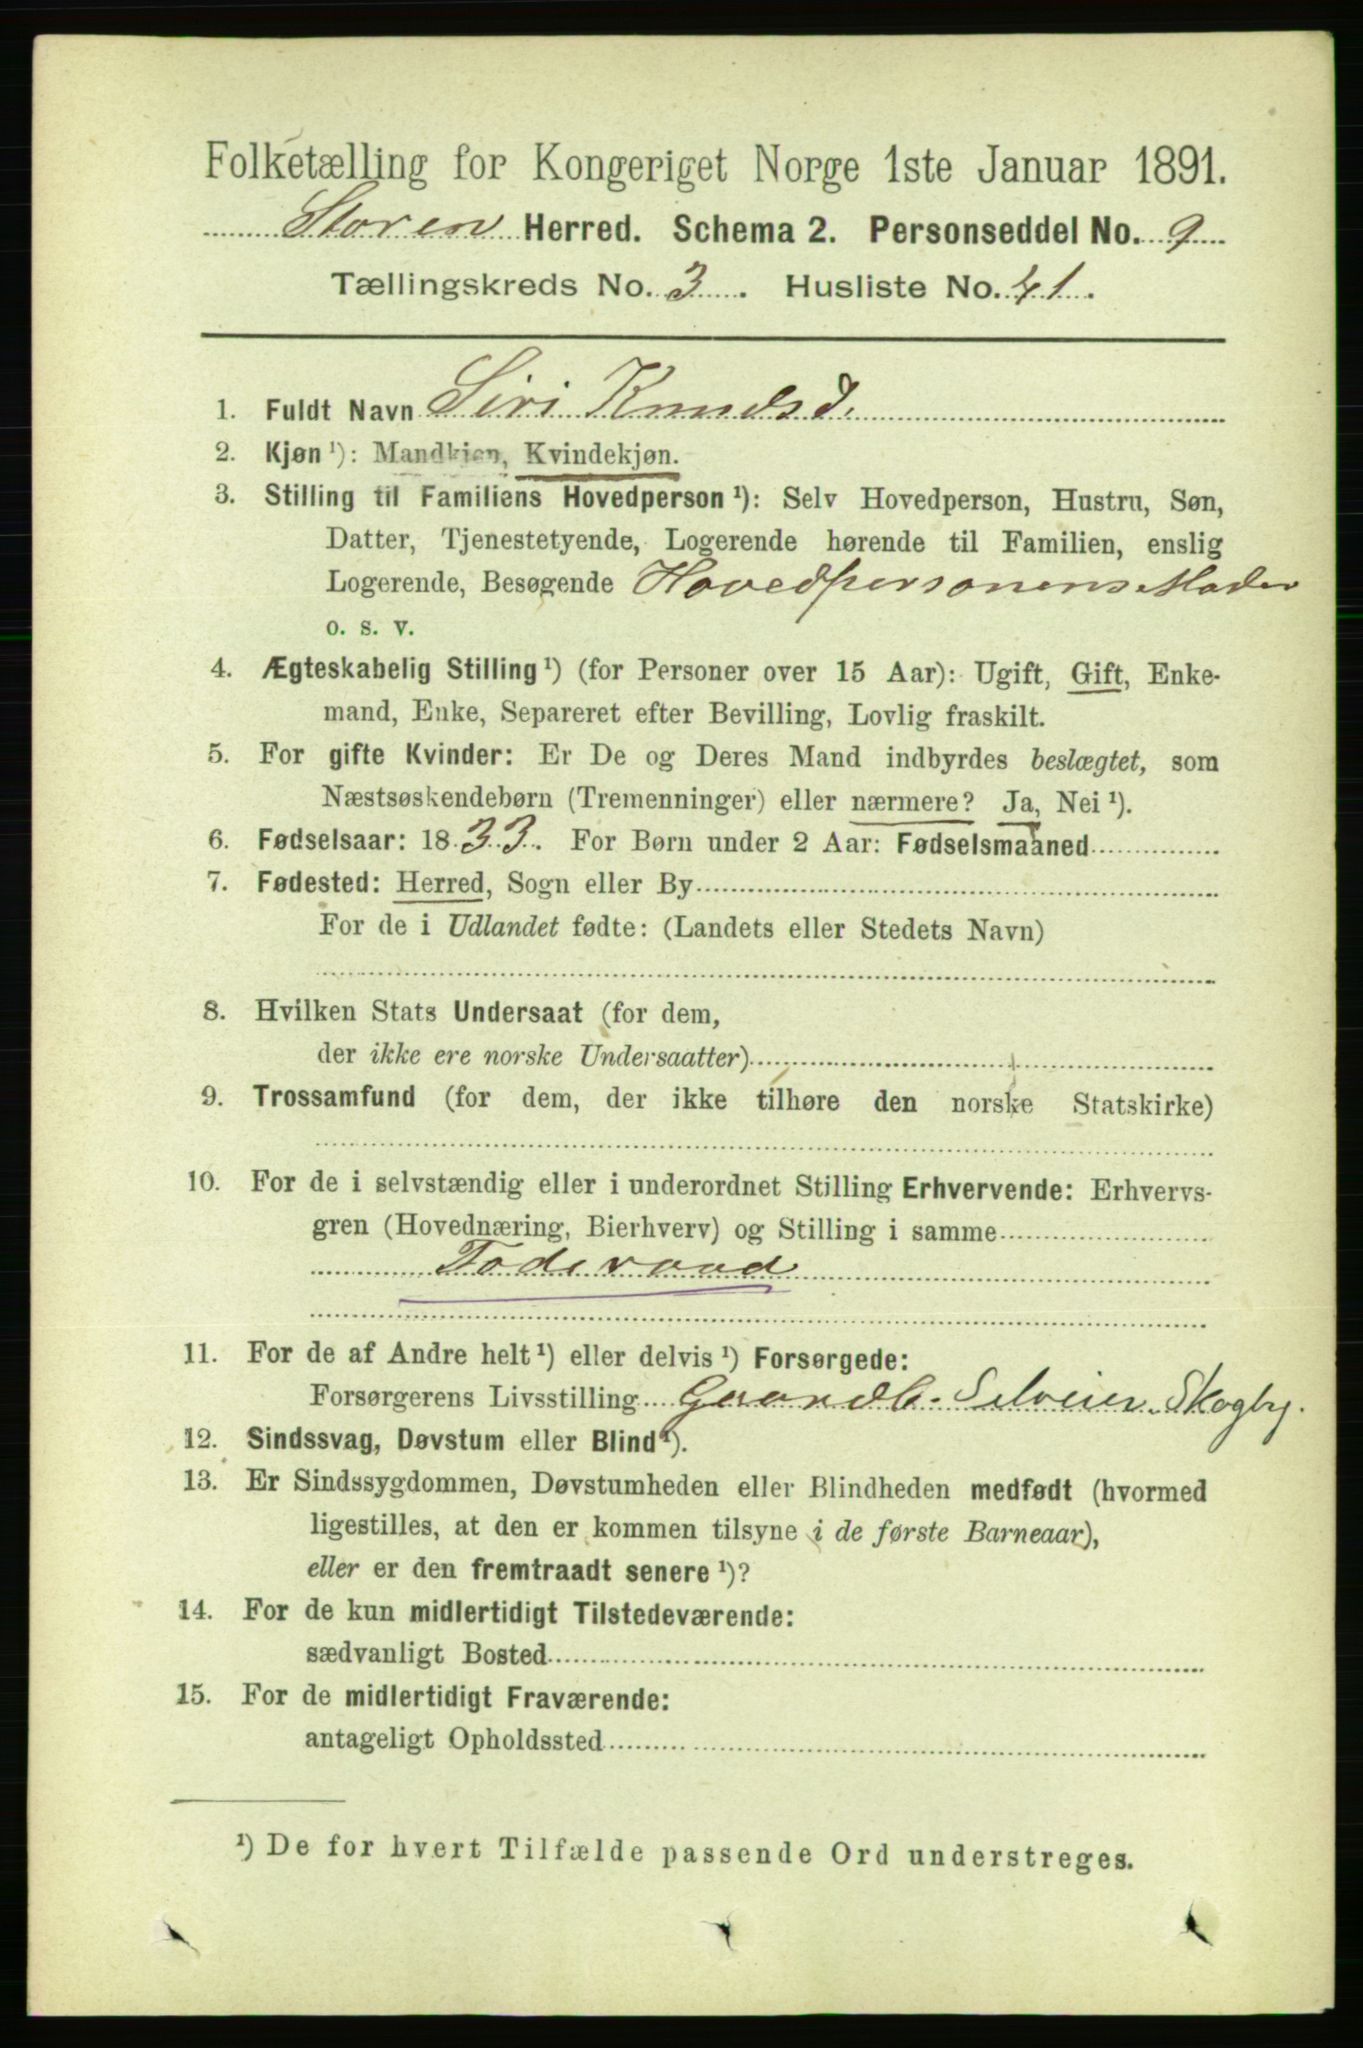 Folketælling for Kongeriget Norge 1ste Januar 1891.
Støren Herred. Schema 2. Personseddel No. 9
Tællingskreds No. 3. Husliste No. 41.
1. Fuldt Navn Siri Knudsd.
2. Kjøn¹): Mandkjøn, Kvindekjøn.
3. Stilling til Familiens Hovedperson¹): Selv Hovedperson, Hustru, Søn,
Datter, Tjenestetyende, Logerende hørende til Familien, enslig
Logerende, Besøgende Hovedpersonens Moder
o. s. v.
4. Ægteskabelig Stilling¹) (for Personer over 15 Aar): Ugift, Gift, Enke-
mand, Enke, Separeret efter Bevilling, Lovlig fraskilt.
5. For gifte Kvinder: Er De og Deres Mand indbyrdes beslægtet, som
Næstsøskendebørn (Tremenninger) eller nærmere? Ja, Nei¹).
6. Fødselsaar: 1833. For Børn under 2 Aar: Fødselsmaaned
7. Fødested: Herred, Sogn eller By
For de i Udlandet fødte: (Landets eller Stedets Navn)
8. Hvilken Stats Undersaat (for dem,
der ikke ere norske Undersaatter)
9. Trossamfund (for dem, der ikke tilhøre den norske Statskirke)
10. For de i selvstændig eller i underordnet Stilling Erhvervende: Erhvervs-
gren (Hovednæring, Bierhverv) og Stilling i samme
Foderaad
11. For de af Andre helt¹) eller delvis¹) Forsørgede:
Forsørgerens Livsstilling Gaardb. Selveier. Skogby.
12. Sindssvag, Døvstum eller Blind¹).
13. Er Sindssygdommen, Døvstumheden eller Blindheden medfødt (hvormed
ligestilles, at den er kommen tilsyne i de første Barneaar),
eller er den fremtraadt senere¹)?
14. For de kun midlertidigt Tilstedeværende:
sædvanligt Bosted
15. For de midlertidigt Fraværende:
antageligt Opholdssted
¹) De for hvert Tilfælde passende Ord understreges.